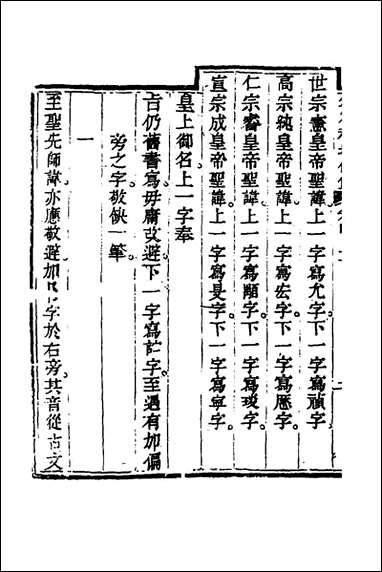 世宗憲皇帝聖諱上一字寫允字。下一字寫禎字。
高宗純皇帝聖諱上一字寫宏字。下一字寫歷字。
仁宗睿皇帝聖諱上一字寫顒字。下一字寫琰字。
宣宗成皇帝聖諱上一字寫旻字。下一字寫寧字。
皇上御名上一字奉
旨仍舊書寫毋庸改避。下一字寫詝字。至遇有加偏
旁之字敬缺一筆。
一
至聖先師諱亦應敬避。加阝字於右旁。其音從古文